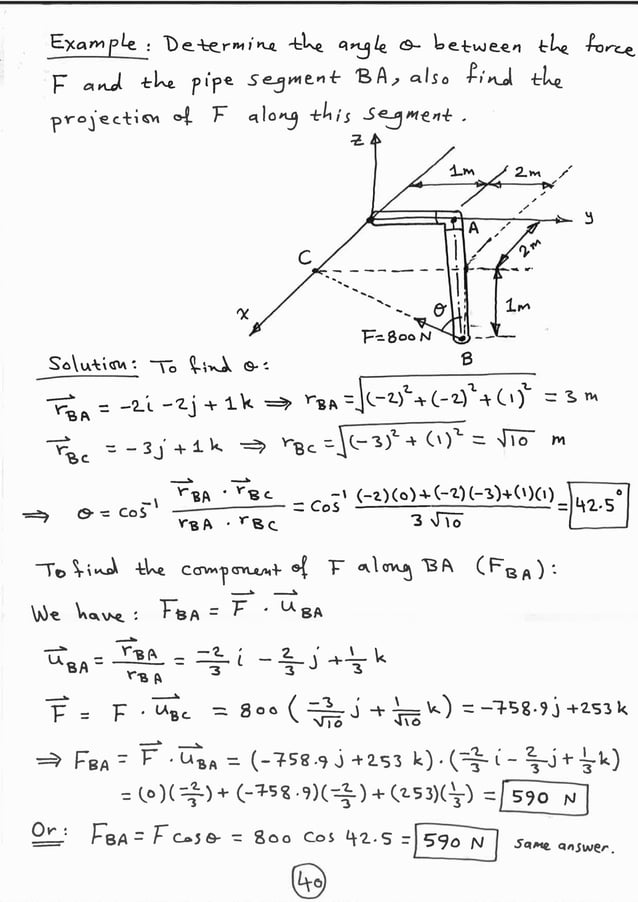 Example : Determine the angle θ between the force
F and the pipe segment BA, also find the
projection of F along this segment.
z
1m
2m
y
A
2m
C
1m
x
θ
F=800N
B
Solution: To find θ:
r⃗_BA = -2i -2j + 1k ⇒ r_BA = √((-2)² + (-2)² + (1)²) = 3 m
r⃗_BC = -3j + 1k ⇒ r_BC = √((-3)² + (1)²) = √10 m
⇒ θ = cos⁻¹ (r⃗_BA · r⃗_BC)/(r_BA · r_BC) = cos⁻¹ ((-2)(0)+(-2)(-3)+(1)(1))/(3√10) = 42.5°
To find the component of F along BA (F_BA):
We have : F_BA = F⃗ · u⃗_BA
u⃗_BA = r⃗_BA/r_BA = -2/3 i - 2/3 j + 1/3 k
F⃗ = F · u⃗_BC = 800 (-3/√10 j + 1/√10 k) = -758.9j +253k
⇒ F_BA = F⃗ · u⃗_BA = (-758.9 j +253 k) · (-2/3 i - 2/3 j + 1/3 k)
= (0)(-2/3) + (-758.9)(-2/3) + (253)(1/3) = 590 N
Or : F_BA = F cos θ = 800 cos 42.5 = 590 N same answer.
40